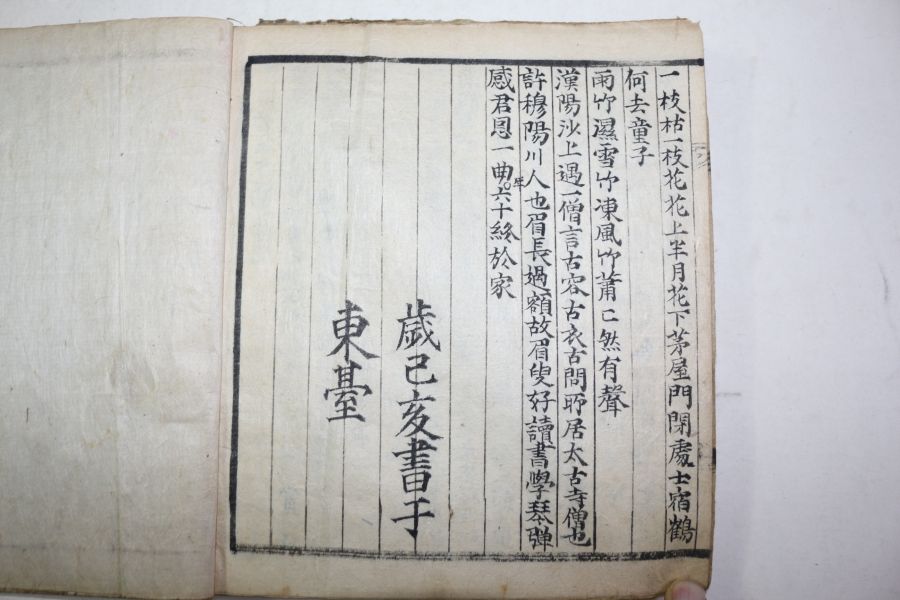 一枝枯一枝花花上半月花下茅屋門閉處士宿鶴
何去童子
雨竹濕雪竹凍風竹蕭〻然有聲
漢陽沙上遇一僧言古容古衣古問所居太古寺僧也
許穆陽川人也眉長過額故眉叟好讀書學琴弹
感君恩一曲年六十終於家
歲己亥書于
東臺